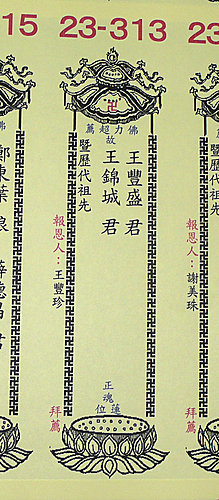 15
23-313
23
佛力超薦
故
王豐盛 君
王錦城 君
暨歷代祖先
報恩人：王豐珍
拜薦
正魂
蓮位
暨歷代祖先
報恩人：謝美珠
拜薦
佛
娘
君